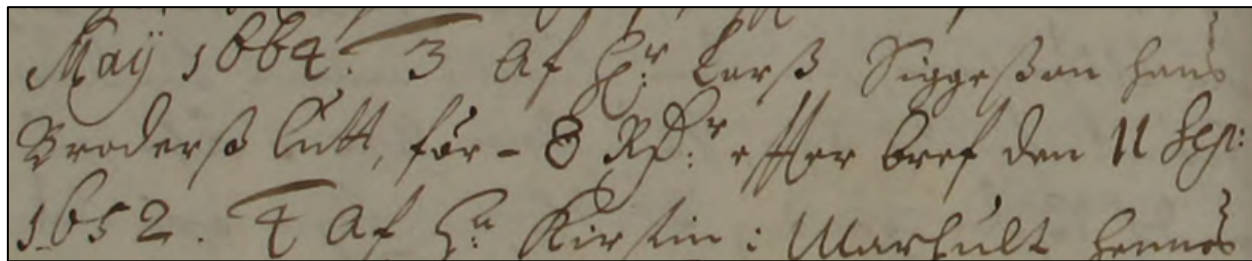 Maÿ 1664. 3 Af H:r Larß Siggeßon hans
Broderß lutt, för - 8 RD:r effter bref den 11 Sep:
1652. 4 Af H:u Kirstin i Marhult hennes